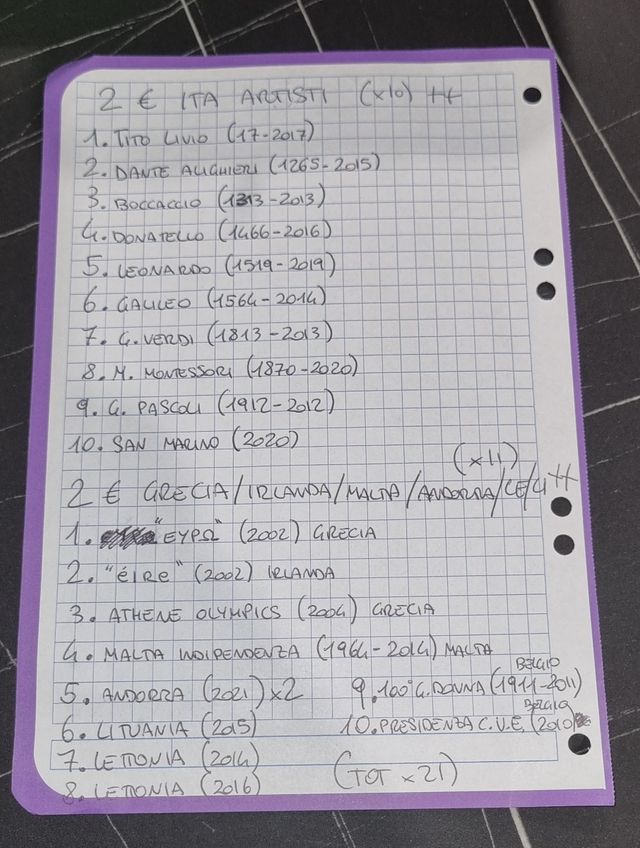 2 € ITA ARTISTI (x10) ++
1. TITO LIVIO (17-2017)
2. DANTE ALIGHIERI (1265-2015)
3. BOCCACCIO (1313-2013)
4. DONATELLO (1466-2016)
5. LEONARDO (1519-2019)
6. GALILEO (1564-2014)
7. G. VERDI (1813-2013)
8. M. MONTESSORI (1870-2020)
9. G. PASCOLI (1912-2012)
10. SAN MARINO (2020)
(x11)
2 € GRECIA/IRLANDA/MALTA/ANDORRA/LE/LI ++
1. "ΕΥΡΩ" (2002) GRECIA
2. "éire" (2002) IRLANDA
3. ATHENE OLYMPICS (2004) GRECIA
4. MALTA INDIPENDENZA (1964-2014) MALTA
5. ANDORRA (2021) x2
6. LITUANIA (2015)
7. LETTONIA (2014)
8. LETTONIA (2016)
BELGIO
9. 100° G. DONNA (1911-2011)
BELGIO
10. PRESIDENZA C.U.E. (2010)
(TOT x 21)